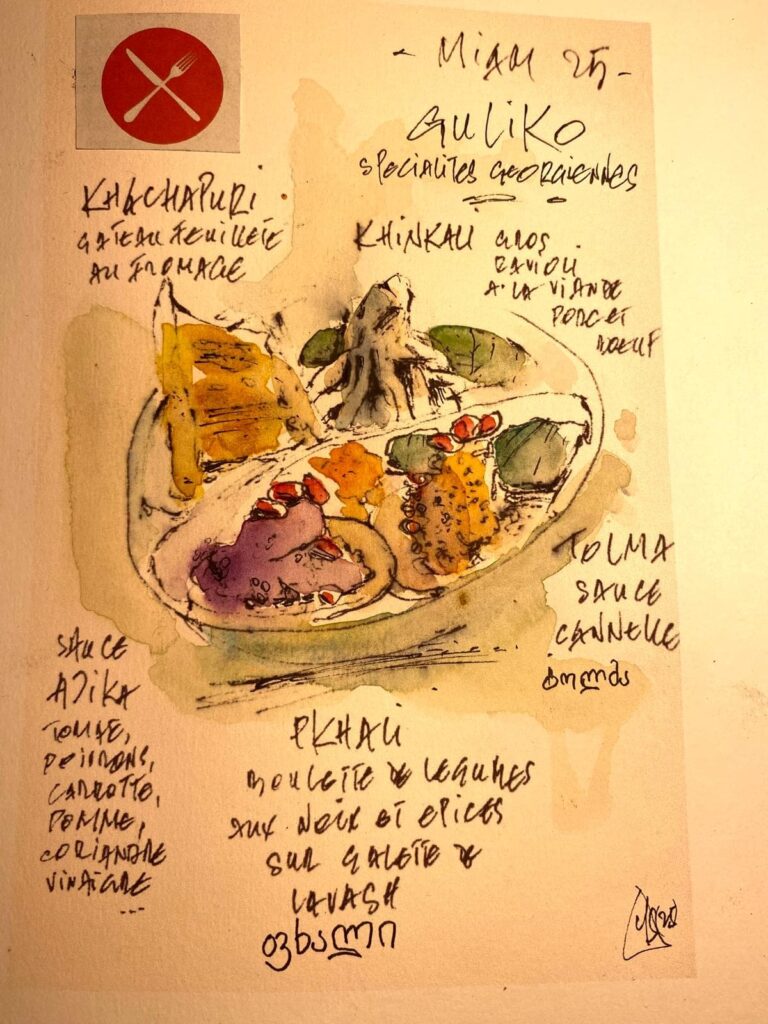 - MIAM 25 -
GULIKO
SPECIALITES GEORGIENNES
KHACHAPURI
GATEAU FEUILLETE
AU FROMAGE
KHINKALI GROS
RAVIOLI
A LA VIANDE
PORC ET
BOEUF
TOLMA
SAUCE
CANNELLE
ტოლმა
SAUCE
ADJIKA
TOMATE,
POIVRONS,
CARROTTE,
POMME,
CORIANDRE
VINAIGRE
...
PKHALI
BOULETTE DE LEGUMES
AUX NOIX ET EPICES
SUR GALETTE DE
LAVASH
ფხალი